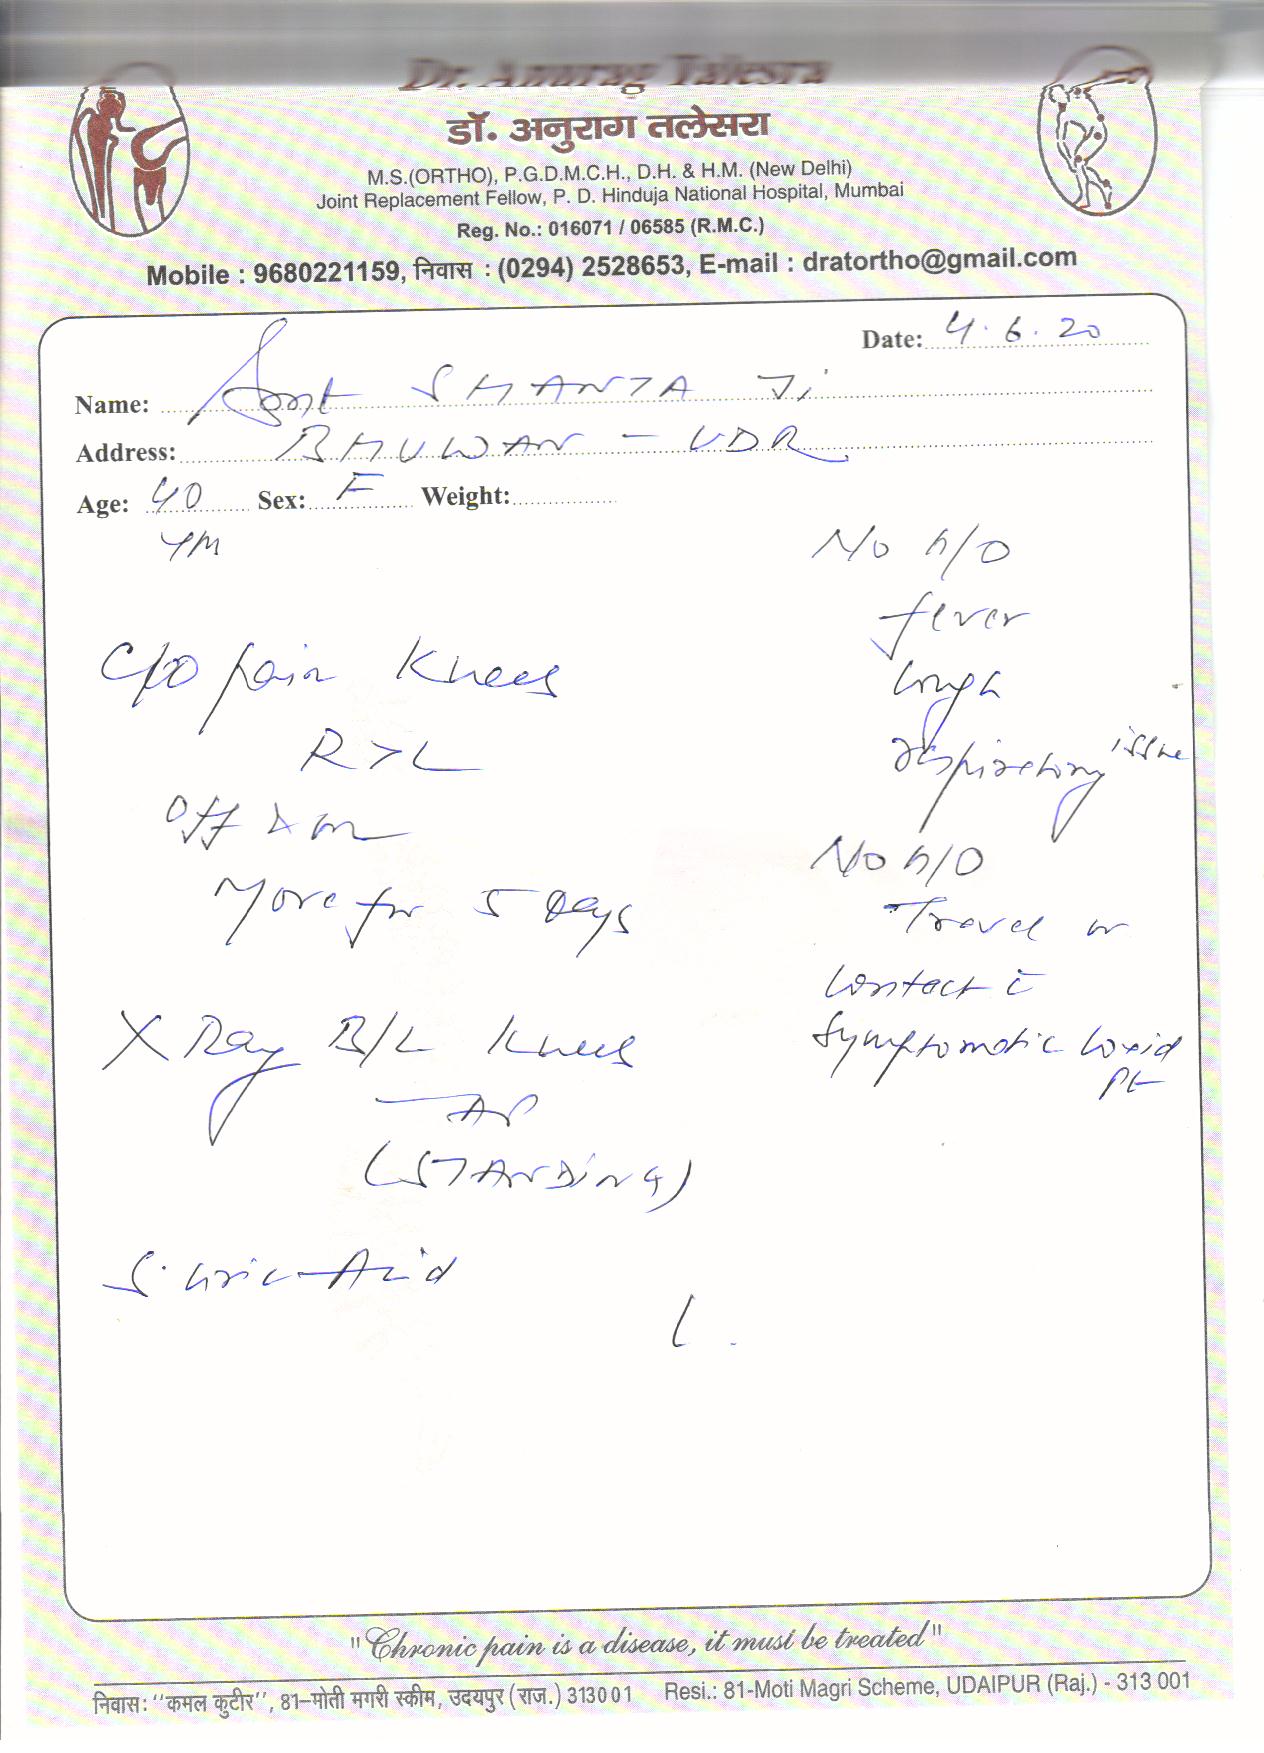 Dr. Anurag Talesra
डॉ. अनुराग तलेसरा
M.S.(ORTHO), P.G.D.M.C.H., D.H. & H.M. (New Delhi)
Joint Replacement Fellow, P. D. Hinduja National Hospital, Mumbai
Reg. No.: 016071 / 06585 (R.M.C.)
Mobile : 9680221159, निवास : (0294) 2528653, E-mail : dratortho@gmail.com
Date: 4.6.20
Name: Smt SHANTA Ji
Address: BHUWAN - UDR
Age: 40 Sex: F Weight:
No h/o
fever
Cough
respiratory issue
C/o pain Knees
R>L
Off & on
More for 5 Days
No h/o
Travel or
Contact c̄
Symptomatic Covid
Pt
X Ray B/L Knees
AP
(STANDiNG)
S. Uric Acid
"Chronic pain is a disease, it must be treated"
निवास: ''कमल कुटीर'', 81–मोती मगरी स्कीम, उदयपुर (राज.) 313001 Resi.: 81-Moti Magri Scheme, UDAIPUR (Raj.) - 313 001